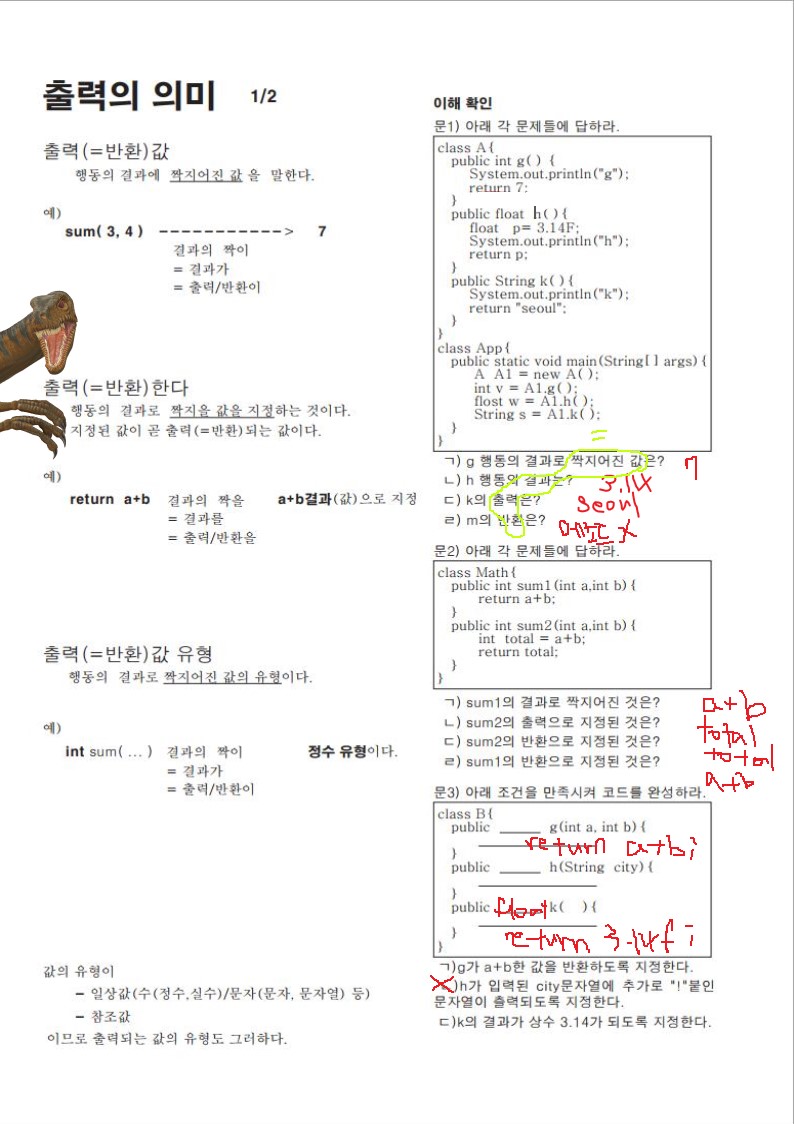 출력의 의미 1/2
출력(=반환)값
행동의 결과에 짝지어진 값 을 말한다.
예)
sum( 3, 4 ) ------------> 7
결과의 짝이
= 결과가
= 출력/반환이
출력(=반환)한다
행동의 결과로 짝지을 값을 지정하는 것이다.
지정된 값이 곧 출력(=반환)되는 값이다.
예)
return a+b 결과의 짝을 a+b결과(값)으로 지정
= 결과를
= 출력/반환을
출력(=반환)값 유형
행동의 결과로 짝지어진 값의 유형이다.
예)
int sum( ... ) 결과의 짝이 정수 유형이다.
= 결과가
= 출력/반환이
값의 유형이
– 일상값(수(정수,실수)/문자(문자, 문자열) 등)
– 참조값
이므로 출력되는 값의 유형도 그러하다.
이해 확인
문1) 아래 각 문제들에 답하라.
class A{
public int g( ) {
System.out.println("g");
return 7;
}
public float h( ){
float p= 3.14F;
System.out.println("h");
return p;
}
public String k( ){
System.out.println("k");
return "seoul";
}
}
class App{
public static void main(String[ ] args){
A A1 = new A( );
int v = A1.g( );
flost w = A1.h( );
String s = A1.k( );
}
}
=
ㄱ) g 행동의 결과로 짝지어진 값은? 7
ㄴ) h 행동의 결과는? 3.14
ㄷ) k의 출력은? Seoul
ㄹ) m의 반환은? 메소드 X
문2) 아래 각 문제들에 답하라.
class Math{
public int sum1(int a,int b){
return a+b;
}
public int sum2(int a,int b){
int total = a+b;
return total;
}
}
ㄱ) sum1의 결과로 짝지어진 것은? a+b
ㄴ) sum2의 출력으로 지정된 것은? total
ㄷ) sum2의 반환으로 지정된 것은? total
ㄹ) sum1의 반환으로 지정된 것은? a+b
문3) 아래 조건을 만족시켜 코드를 완성하라.
class B{
public ______ g(int a, int b){
return a+b;
}
public ______ h(String city){
}
public float k( ){
return 3.14f;
}
}
ㄱ)g가 a+b한 값을 반환하도록 지정한다.
X)h가 입력된 city문자열에 추가로 "!"붙인
문자열이 출력되도록 지정한다.
ㄷ)k의 결과가 상수 3.14가 되도록 지정한다.